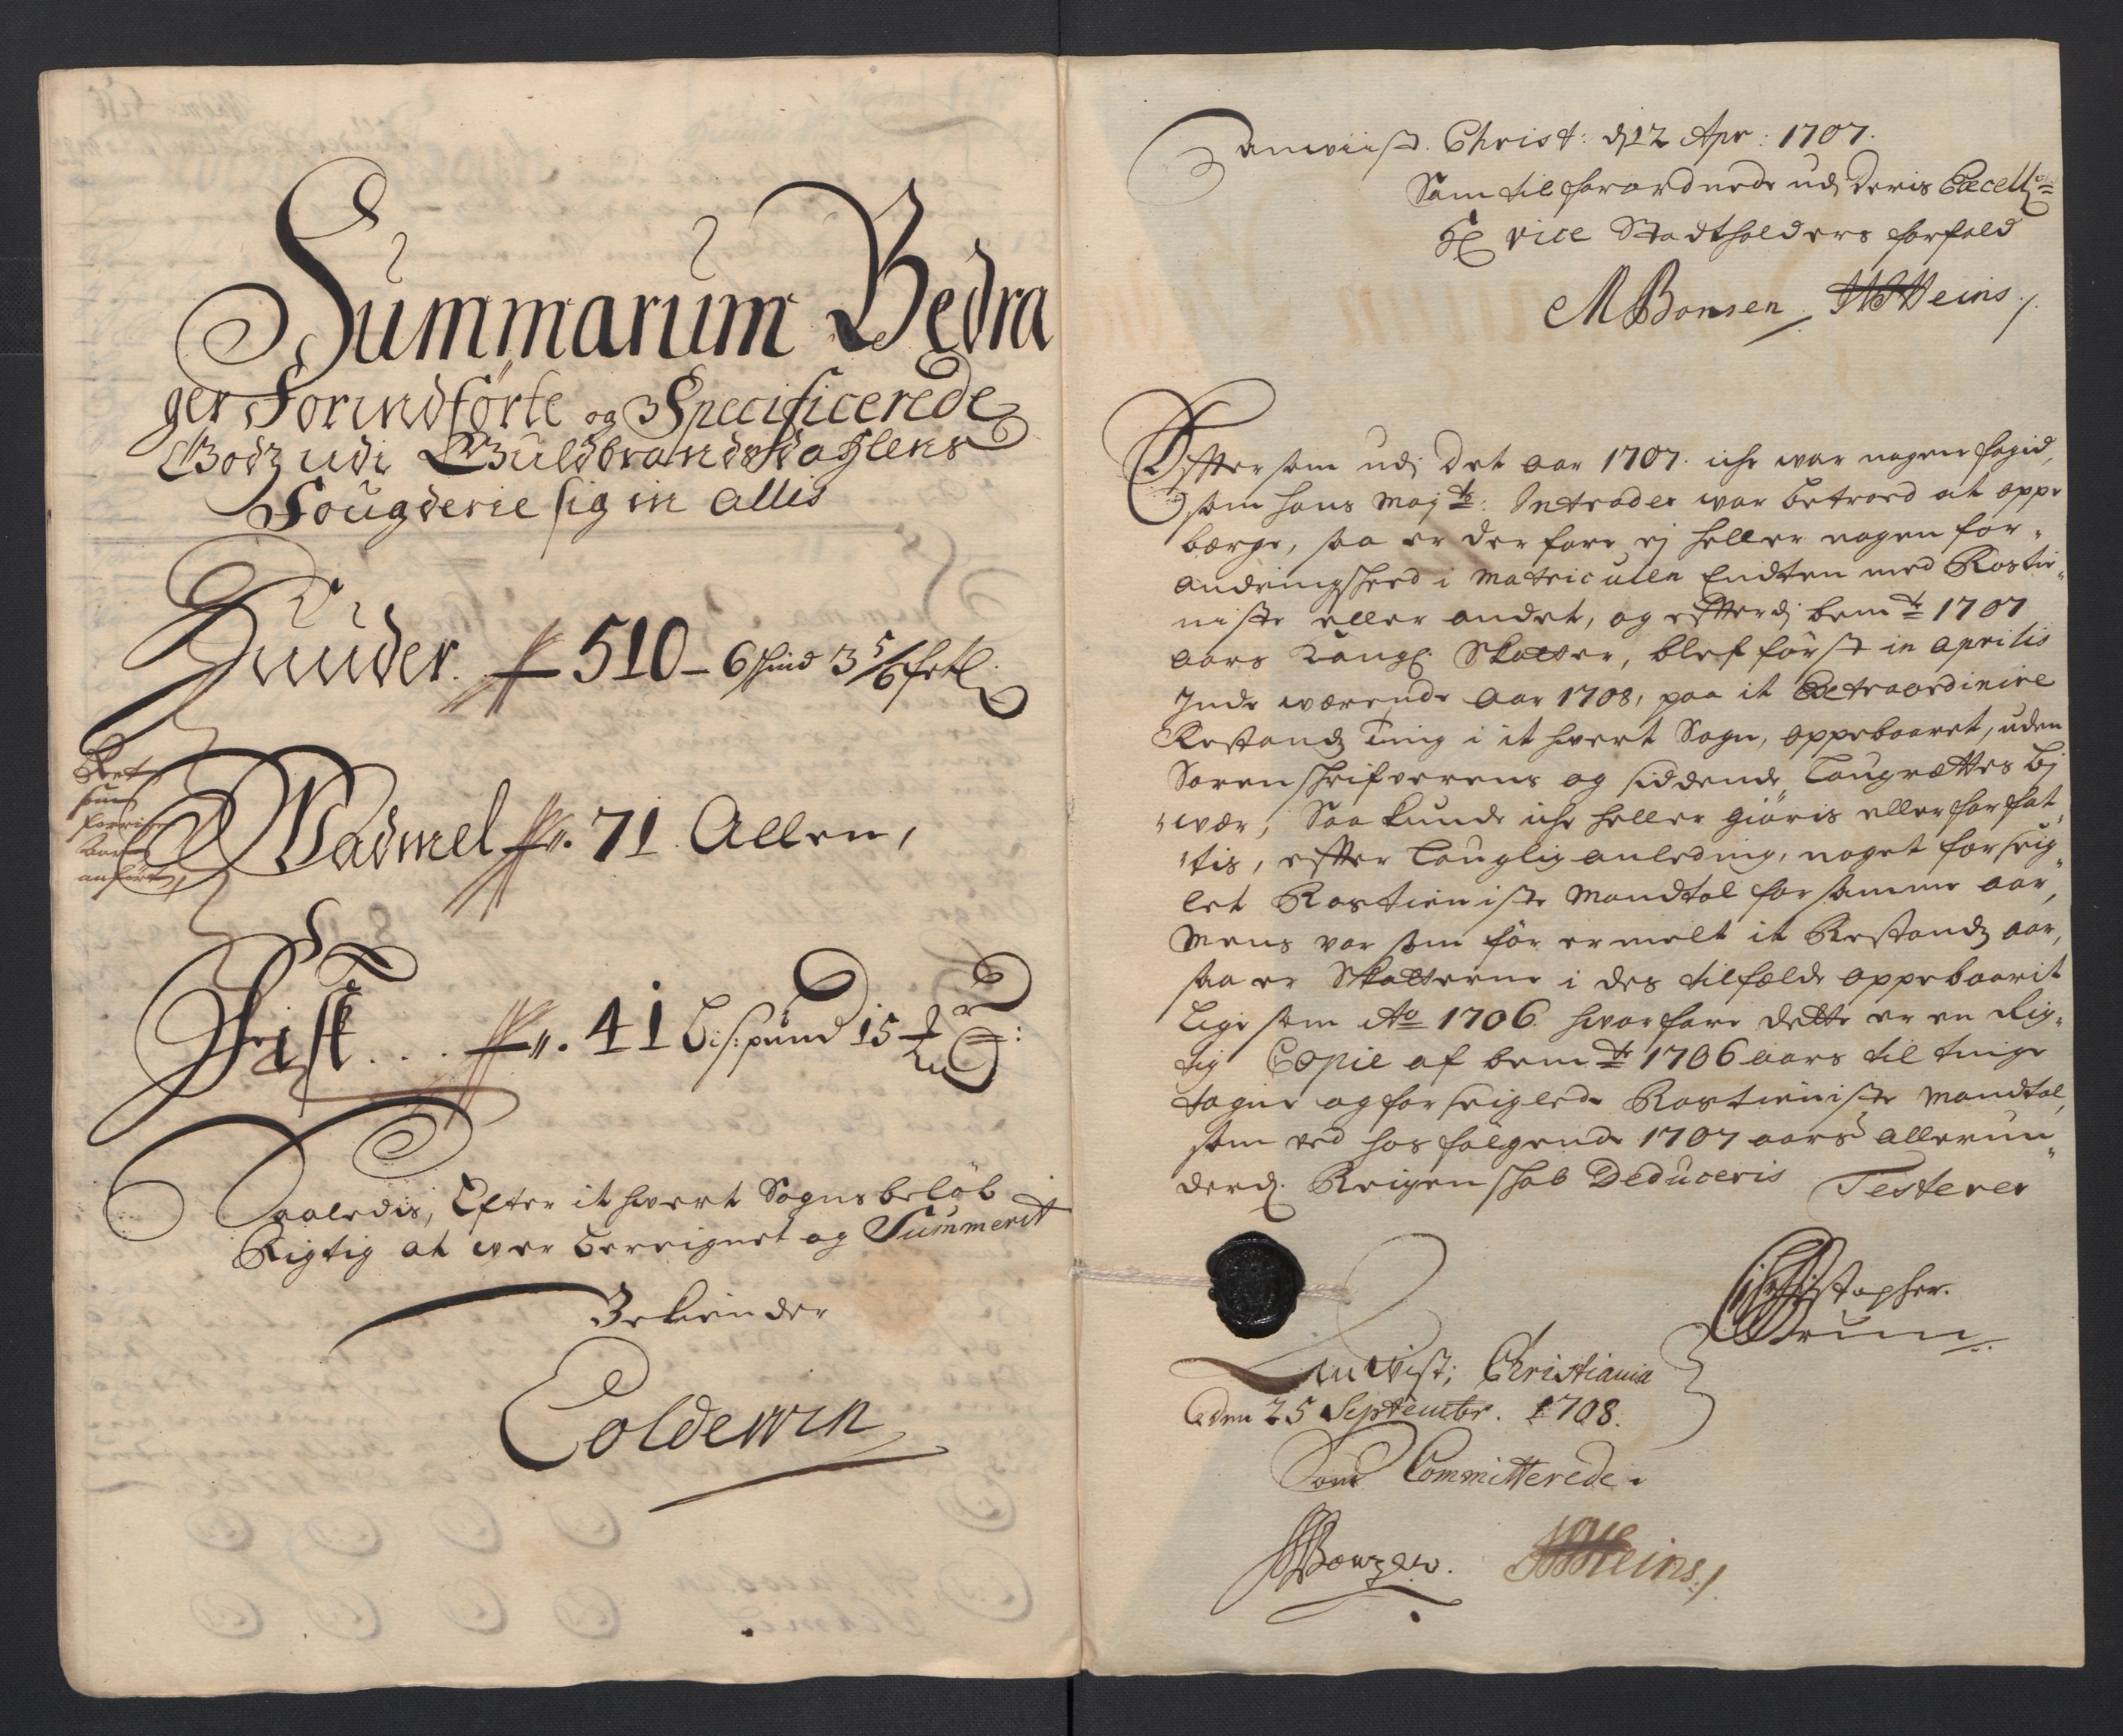 Summarum Bedra
ger Forindførte og Specificerede
Godz udi Guldbrandsdahlens
Fougderie sig in Allis
Huuder. 510 - 6 skind 3 5/6
Ret
som
forrige
Aar
anført,
Wadmel 71 Allen,
Fisk... 41 Bis:pund 15
Saaledis, Efter it hvert Sogns beløb
Rigtig at wer bereignet og Summerit
Bekiender
Coldewin
Anwiist. Christ: d. 12 Apr: 1707.
Som tilforordnede udj Deris Excell:
H: vice Stadtholders forfald
MBonsen Heins
Effter som udj Det aar 1707. iche war nogen fogid,
som hans May:ts Intrader war betroed at oppe
bærge, saa er der fore ej heller nogen for¬
andringshed i matriculen Endten med Roßtie¬
niste eller andet, og effterdj bem:te 1707
aars Kongl: Skatter, blef først in aprilis
Inde wærende aar 1708, paa it Extraordinire
Restandz Ting i it hwert Sogn, oppebaaret, uden
Sorenskrifverens og siddende Laugrættes bj
wær, Saa kunde iche heller giøris eller forfat¬
tis, effter lauglig anledning, noget forseig¬
let Rostieniste Mandtal for samme aar,
Mens var som før ermelt it Restandz aar,
saa er Skatterne i des tilfælde oppebaarit
Lige som Ao 1706. hworfore dette er en Rig¬
tig Copie af bem:te 1706 aars til tinge
tagne og forseiglede Rostieniste Mandtal,
som ved hos følgende 1707 aars allerun¬
derd: Reigenskab Deduceris Testerer
Christopher
Strum
Anvist, Christiania
den 25 Septembr. 1708.
Som Committerede.
Heins